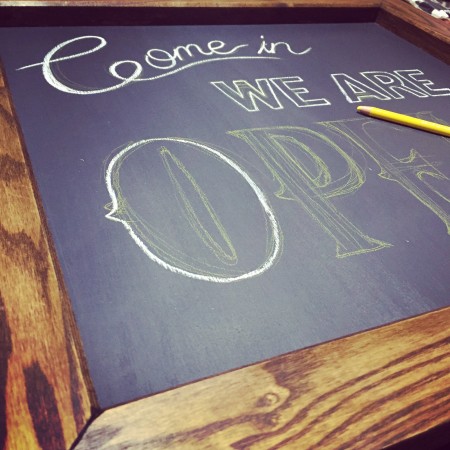 Come in
WE ARE
OPE